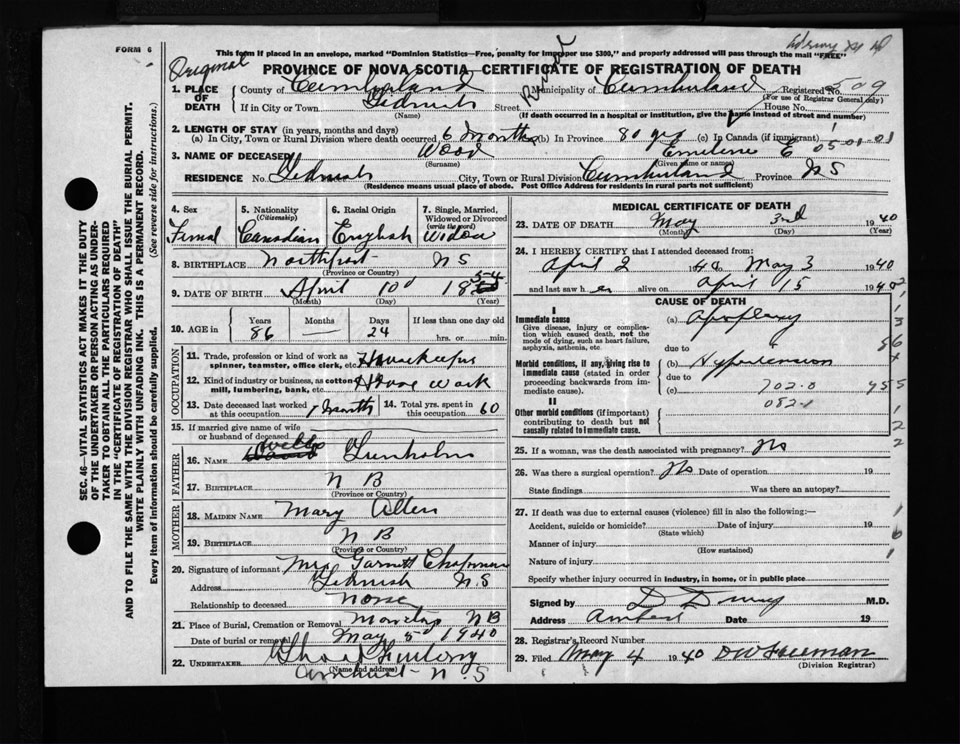 FORM 6
This form if placed in an envelope, marked "Dominion Statistics—Free, penalty for improper use $300," and properly addressed will pass through the mail "FREE"
Original
PROVINCE OF NOVA SCOTIA—CERTIFICATE OF REGISTRATION OF DEATH
1. PLACE OF DEATH County of Cumberland Municipality of Cumberland Registered No. 509
(For use of Registrar General only)
If in City or Town Tidnish Street House No.
(Name) (If death occurred in a hospital or institution, give the name instead of street and number)
2. LENGTH OF STAY (in years, months and days)
(a) In City, Town or Rural Division where death occurred 6 months (b) In Province 80 yrs (c) In Canada (if immigrant)
3. NAME OF DECEASED Wood Emeline E 05-01-01
(Surname) (Given name or names)
RESIDENCE No. Tidnish City, Town or Rural Division Cumberland Province NS
(Residence means usual place of abode. Post Office Address for residents in rural parts not sufficient)
4. Sex Femal
5. Nationality (Citizenship) Canadian
6. Racial Origin English
7. Single, Married, Widowed or Divorced (write the word) Widow
8. BIRTHPLACE Northport NS
(Province or Country)
9. DATE OF BIRTH April 10 1854
(Month) (Day) (Year)
10. AGE in Years 86 Months Days 24 If less than one day old hrs. or min.
OCCUPATION
11. Trade, profession or kind of work as spinner, teamster, office clerk, etc. Housekeeper
12. Kind of industry or business, as cotton mill, lumbering, bank, etc. House Work
13. Date deceased last worked at this occupation 1 month
14. Total yrs. spent in this occupation 60
15. If married give name of wife or husband of deceased
FATHER
16. Name
17. BIRTHPLACE N B
(Province or Country)
MOTHER
18. MAIDEN NAME Mary Allen
19. BIRTHPLACE N B
(Province or Country)
20. Signature of informant Mrs Garnett Chapman
Address Tidnish N.S
Relationship to deceased None
21. Place of Burial, Cremation or Removal NB
Date of burial or removal May 5 1940
22. UNDERTAKER
(Name and address)
Amherst N.S
MEDICAL CERTIFICATE OF DEATH
23. DATE OF DEATH May 3rd 1940
(Month) (Day) (Year)
24. I HEREBY CERTIFY that I attended deceased from:
April 2 1940 May 3 1940
and last saw her alive on April 15 1940
CAUSE OF DEATH
I
Immediate cause (a) Apoplexy
Give disease, injury or complication which caused death, not the mode of dying, such as heart failure, asphyxia, asthenia, etc.
due to
Morbid conditions, if any, giving rise to immediate cause (stated in order proceeding backwards from immediate cause). (b) Hypertension
due to
(c) 702.0 955
II
082-1
Other morbid conditions (if important) contributing to death but not causally related to immediate cause.
25. If a woman, was the death associated with pregnancy? No
26. Was there a surgical operation? No Date of operation 19
State findings Was there an autopsy?
27. If death was due to external causes (violence) fill in also the following:—
Accident, suicide or homicide? Date of injury 19
(State which)
Manner of injury
(How sustained)
Nature of injury
Specify whether injury occurred in industry, in home, or in public place
Signed by M.D.
Address Amherst Date 19
28. Registrar's Record Number
29. Filed May 4 1940 DW Freeman
(Division Registrar)
SEC. 46—VITAL STATISTICS ACT MAKES IT THE DUTY
OF THE UNDERTAKER OR PERSON ACTING AS UNDERTAKER TO OBTAIN ALL THE PARTICULARS REQUIRED
IN THE "CERTIFICATE OF REGISTRATION OF DEATH"
AND TO FILE THE SAME WITH THE DIVISION REGISTRAR WHO SHALL ISSUE THE BURIAL PERMIT.
WRITE PLAINLY WITH UNFADING INK. THIS IS A PERMANENT RECORD.
Every item of information should be carefully supplied. (See reverse side for instructions.)